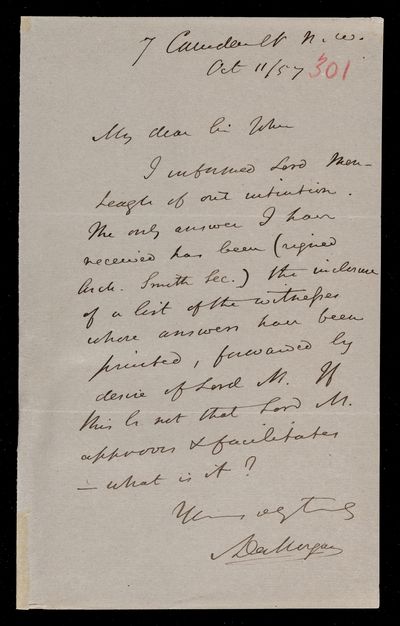 7 Camden St N.W.
Oct 11/57 301
My dear Sir John
I informed Lord Mon-
teagle of our intention.
The only answer I have
received has been (signed
Arch. Smith Sec.) the inclosure
of a list of the witnesses
whose answers have been
printed, forwarded by
desire of Lord M. If
this be not that Lord M.
approves & facilitates
– what is it?
Yours
ADeMorgan